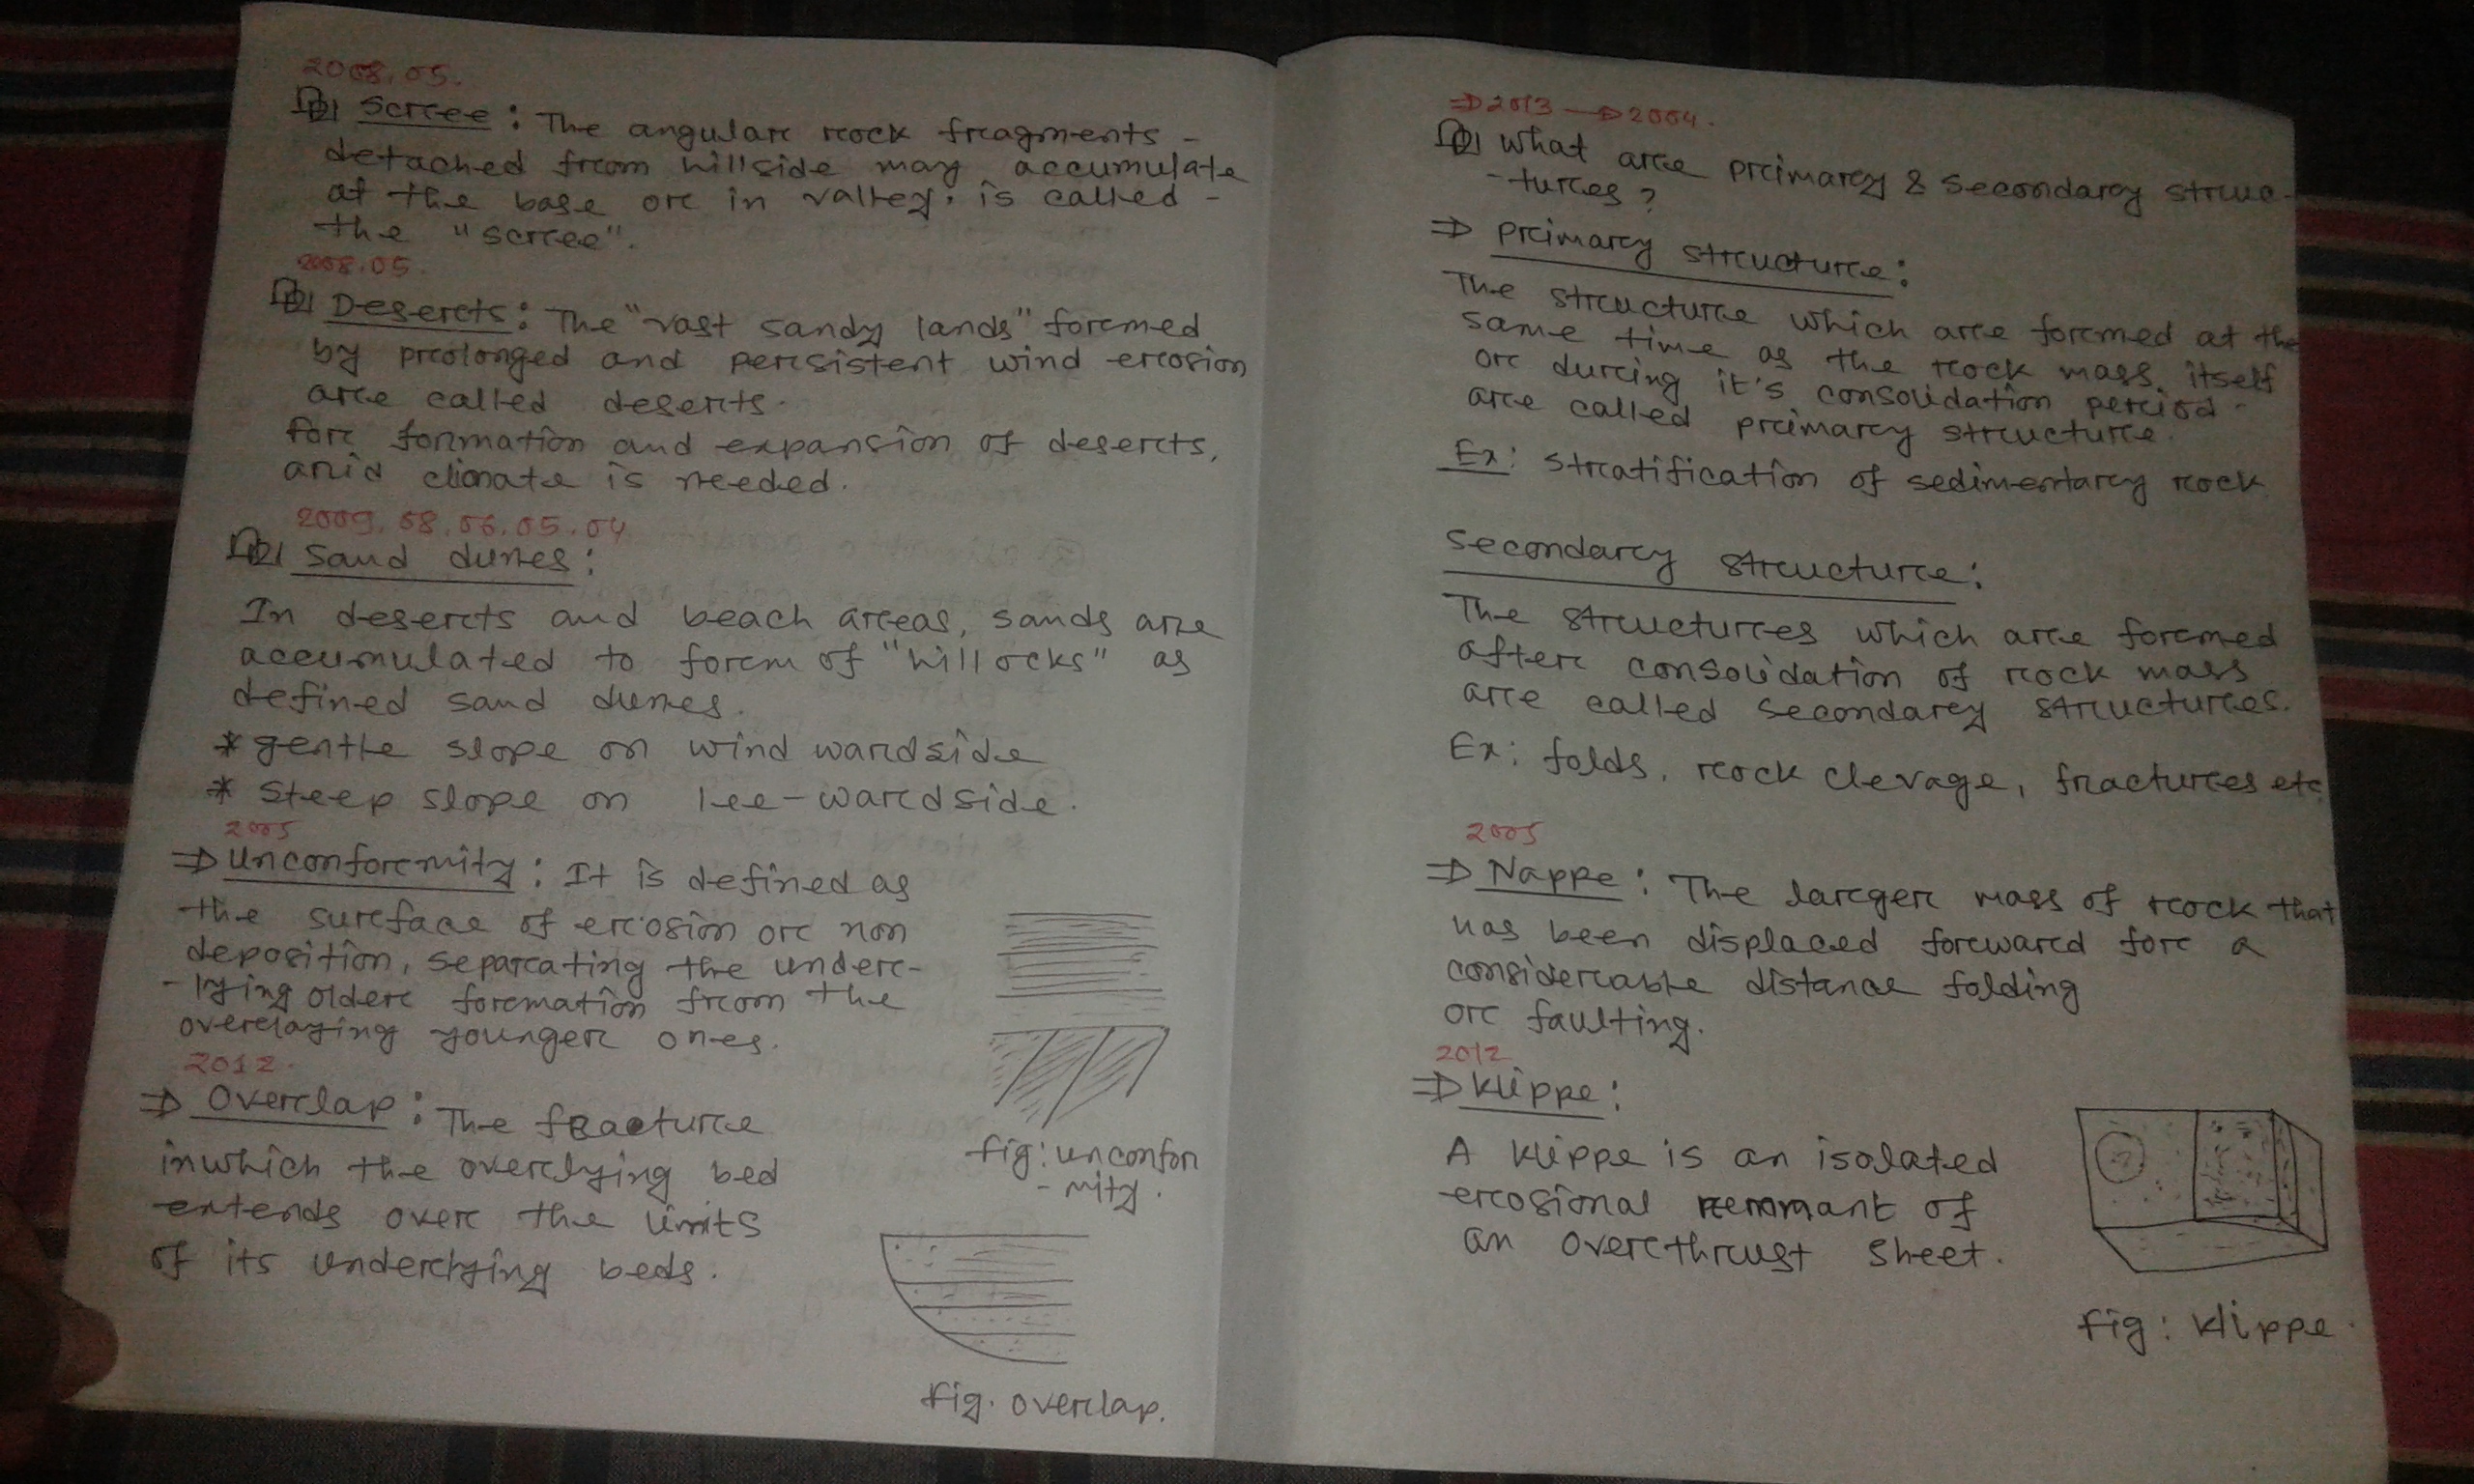 2008.05.
Q Scree : The angular rock fragments -
detached from hillside may accumulate
at the base or in valley. is called -
the "scree".
2008.05.
Q Deserts : The "vast sandy lands" formed
by prolonged and persistent wind erosion
are called deserts.
for formation and expansion of deserts,
arid climate is needed.
2009, 08, 06, 05, 04
Q Sand dunes :
In deserts and beach areas, sands are
accumulated to form of "hillocks" as
defined sand dunes.
* gentle slope on wind wardside
* Steep slope on lee-wardside.
2005
⇒ Unconformity : It is defined as
the surface of erosion or non
deposition, separating the under-
-lying older formation from the
overlaying younger ones.
fig: unconfor
-mity.
2012.
⇒ Overlap : The fracture
inwhich the overlying bed
extends over the limits
of its underlying beds.
fig. overlap.
⇒2013 ⇒2004.
Q What are primary & secondary struc-
-tures ?
⇒ primary structure :
The structure which are formed at the
same time as the rock mass. itself
or during it's consolidation period -
are called primary structure.
Ex: stratification of sedimentary rock
Secondary structure :
The structures which are formed
after consolidation of rock mass
are called secondary structures.
Ex: folds, rock clevage, fractures etc
2005
⇒ Nappe : The larger mass of rock that
has been displaced forward for a
considerable distance folding
or faulting.
2012
⇒ klippe :
A klippe is an isolated
erosional remmant of
an overthrust sheet.
fig : klippe.